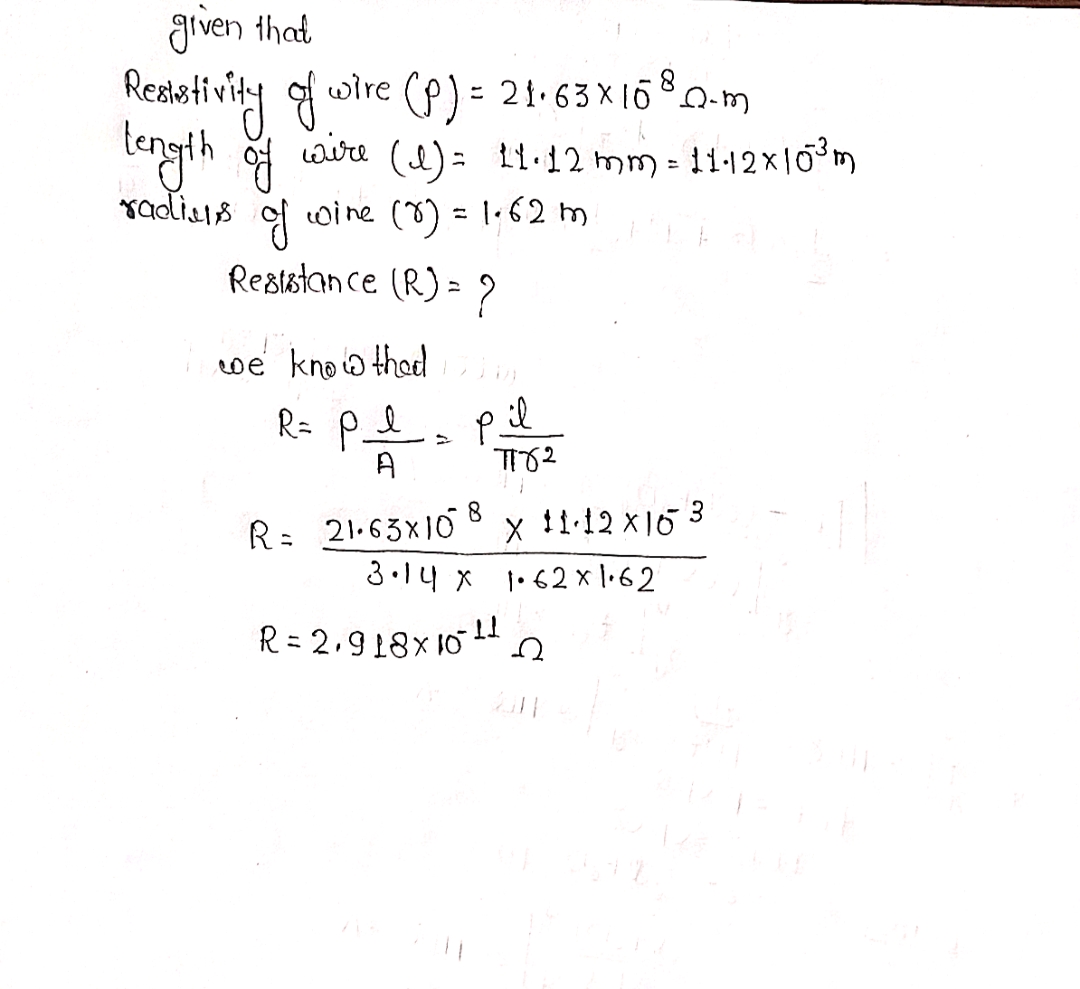 given that
Resistivity of wire (ρ) = 21.63 × 10⁻⁸ Ω-m
length of wire (l) = 11.12 mm = 11.12 × 10⁻³ m
radius of wire (r) = 1.62 m
Resistance (R) = ?
we know that
R = ρ l/A = ρ l/πr²
R = 21.63×10⁻⁸ × 11.12 × 10⁻³ / 3.14 × 1.62 × 1.62
R = 2.918 × 10⁻¹¹ Ω